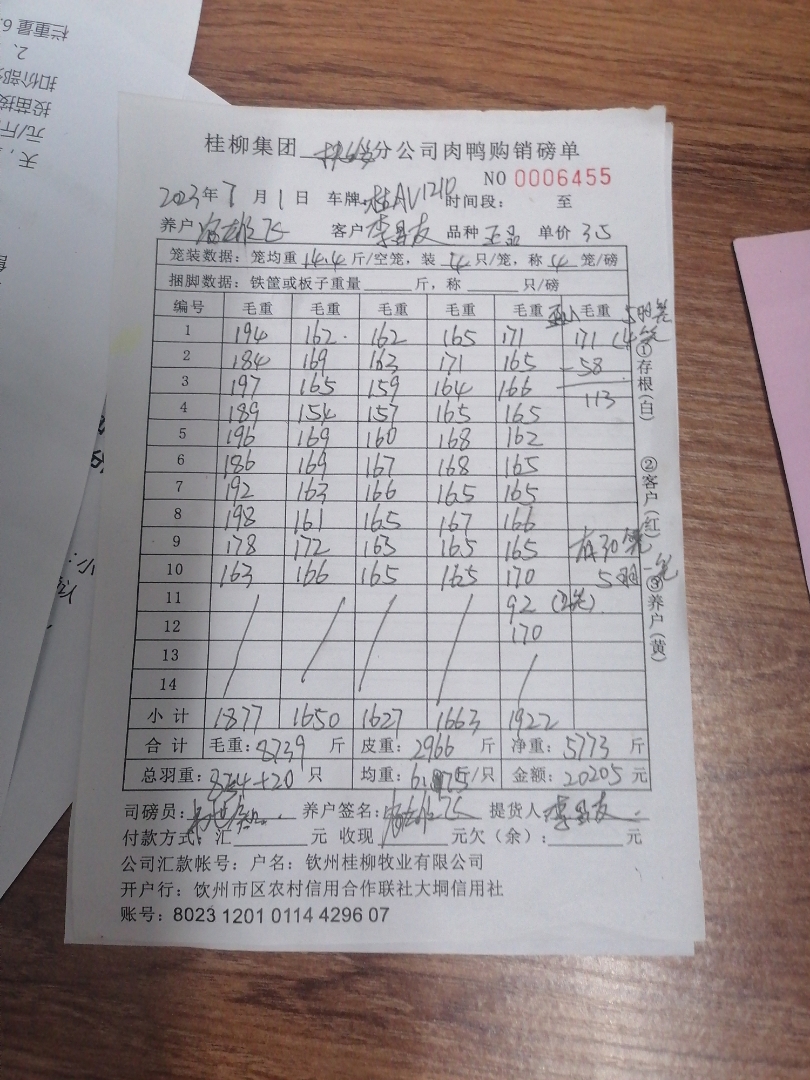 栏重量 6.
2、
扣价部分
投苗接
元/斤
天,
桂柳集团 分公司肉鸭购销磅单
NO 0006455
2023年7月1日 车牌:桂AV121P 时间段: 至
养户 客户 李昌友 品种 正品 单价 3.5
笼装数据:笼均重 14.4 斤/空笼,装 4 只/笼,称 4 笼/磅
捆脚数据:铁筐或板子重量 斤,称 只/磅
编号 毛重 毛重 毛重 毛重 毛重 毛重 5羽笼
1 194 162. 162 165 171 171 (4笼
2 184 169 163 171 165 -58
3 197 165 159 164 166 113
4 189 154 157 165 165
5 196 169 160 168 162
6 186 169 167 168 165
7 192 163 166 165 165
8 198 161 165 167 166
9 178 172 163 165 165 有30笼
10 163 166 165 165 170 5羽一笼
11 92 (2笼).
12 170
13
14
小计 1877 1650 1627 1663 1922
合计 毛重:8739 斤 皮重:2966 斤 净重:5773 斤
总羽重:854+20 只 均重:6.75斤/只 金额:20205元
司磅员: 养户签名: 提货人 李昌友
付款方式:汇 元 收现 元欠(余): 元
公司汇款帐号:户名:钦州桂柳牧业有限公司
开户行:钦州市区农村信用合作联社大垌信用社
账号:8023 1201 0114 4296 07
①存根(白) ②客户(红) ③养户(黄)